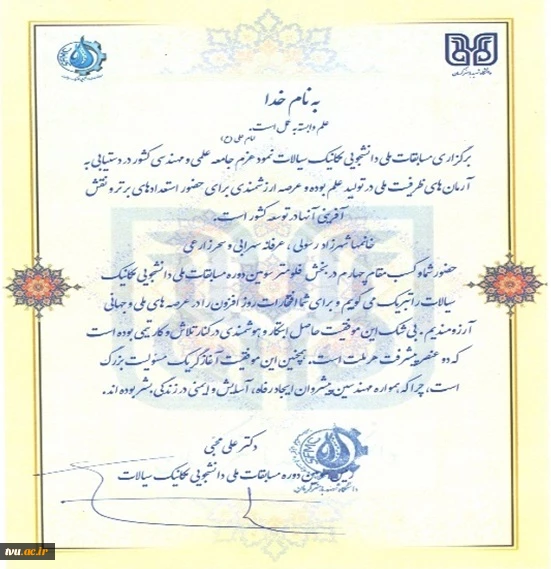 دانشگاه شهید باهنر کرمان
به نام خدا
علم وابسته به عمل است.
امام علی (ع)
برگزاری مسابقات ملی دانشجویی مکانیک سیالات نمود هزم جامعه علمی و مهندسی کشور در دستیابی به
آرمان های ظرفیت ملی در تولید علم بوده و عرصه ارزشمندی برای حضور استعدادهای برتر و نقش
آفرینی آنها در توسعه کشور است.
خانمها شهرزاد رسولی، عرفانه سهرابی و سحر زارعی
حضور شما و کسب مقام چهارم در بخش فلومتر سومین دوره مسابقات ملی دانشجویی مکانیک
سیالات را تبریک می گویم و برای شما افتخارات روز افزون را در عرصه های ملی و جهانی
آرزومندیم. بی شک این موفقیت حاصل ابتکار و هوشمندی در کنار تلاش و کار تیمی بوده است
که دو عنصر پیشرفت هر ملت است. همچنین این موفقیت آغازگر یک مسئولیت بزرگ
است، چرا که همواره مهندسین پیشروان ایجاد رفاه، آسایش و ایمنی در زندگی بشر بوده اند.
دکتر علی محبی
SFMC
دوره مسابقات ملی دانشجویی مکانیک سیالات
دانشگاه شهید باهنر کرمان
tvu.ac.ir